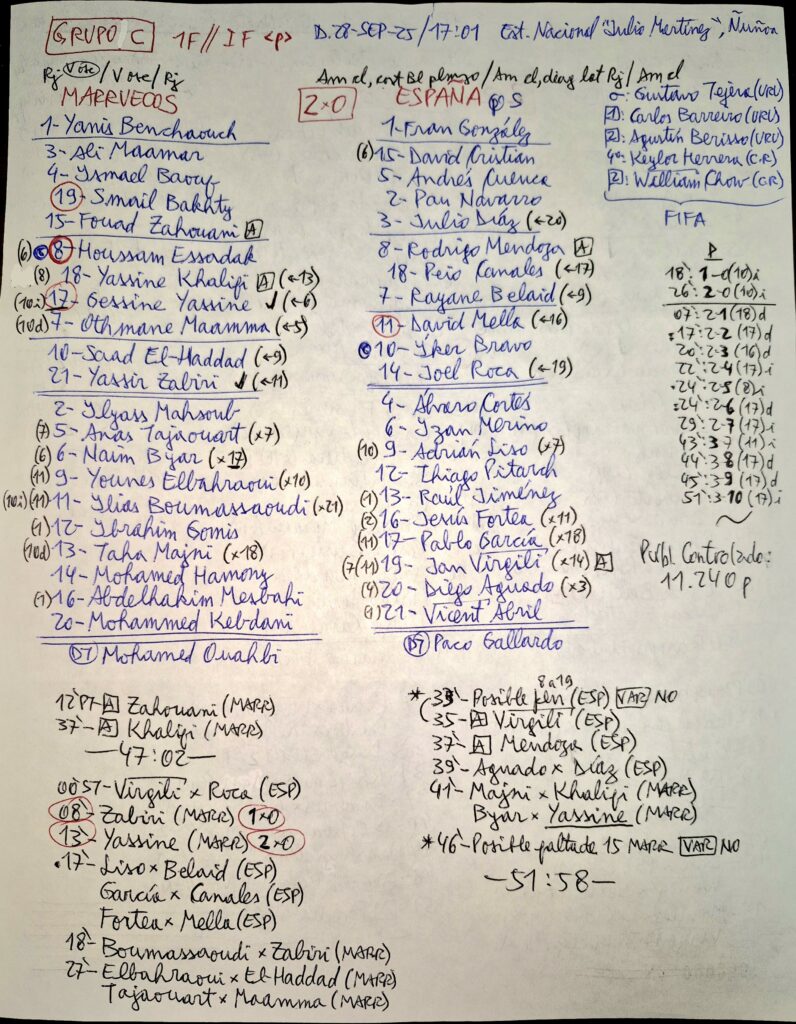 GRUPO C 1F // IF <p> D.28-SEP-25/17:01 Est. Nacional "Julio Martínez", Ñuñoa
Rj Vosc/Vosc/Rj
MARRUECOS
1- Yanis Benchaouch
3- Ali Maamar
4- Ismael Baouf
19- Smail Bakhty
15- Fouad Zahouani A
(6) C 8- Houssam Essadak
(8) 18- Yassine Khalifi A (←13)
(10.i) 17- Gessine Yassine ✓ (←6)
(10d) 7- Othmane Maamma (←5)
10- Saad El-Haddad (←9)
21- Yassir Zabiri ✓ (←11)
2- Ilyass Mahsoub
(7) 5- Anas Tajaouart (×7)
(6) 6- Naim Byar (×17)
(11) 9- Younes Elbahraoui (×10)
(10.i)(11) 11- Ilias Boumassaoudi (×21)
(1) 12- Ibrahim Gomis
(10d) 13- Taha Majni (×18)
14- Mohamed Hamony
(1) 16- Abdelhakim Mesbahi
20- Mohammed Kebdani
DT Mohamed Ouahbi
2×0
Am cl, cost Bl /Am cl, diag lat Rj/Am cl
ESPAÑA p s
1- Fran González
(6) 15- David Cristian
5- Andrés Cuenca
2- Pau Navarro
3- Julio Díaz (←20)
8- Rodrigo Mendoza A
18- Peio Canales (←17)
7- Rayane Belaid (←9)
11- David Mella (←16)
C 10- Iker Bravo
14- Joel Roca (←19)
4- Alvaro Cortés
6- Izan Merino
(10) 9- Adrián Liso (×7)
12- Thiago Pitarch
(1) 13- Raúl Jiménez
(2) 16- Jesús Fortea (×11)
(11) 17- Pablo García (×18)
(7)(11) 19- Jan Virgili (×14) A
(4) 20- Diego Aguado (×3)
(1) 21- Vicent Abril
DT Paco Gallardo
o-: Gustavo Tejera (URU)
1: Carlos Barreiro (URU)
2: Agustín Berisso (URU)
4º: Keylor Herrera (C.R)
2: William Chow (C.R)
FIFA
P
18': 1-0 (10) i
26': 2-0 (10) i
07': 2-1 (18) d
17': 2-2 (17) d
20': 2-3 (16) d
22': 2-4 (17) i
24': 2-5 (8) i
24': 2-6 (17) d
29': 2-7 (17) i
43': 3-7 (11) i
44': 3-8 (17) d
45': 3-9 (17) d
51': 3-10 (17) i
Públ. Controlado:
11.240 p
12'PT A Zahouani (MARR)
37'- A Khalifi (MARR)
—47:02—
00'57- Virgili × Roca (ESP)
08'- Zabiri (MARR) 1×0
13'- Yassine (MARR) 2×0
17'- Liso × Belaid (ESP)
García × Canales (ESP)
Fortea × Mella (ESP)
18'- Boumassaoudi × Zabiri (MARR)
27'- Elbahraoui × El-Haddad (MARR)
Tajaouart × Maamma (MARR)
8 a 19
*33'- Posible pen (ESP) VAR NO
35- A Virgili (ESP)
37'- A Mendoza (ESP)
39'- Aguado × Díaz (ESP)
41'- Majni × Khalifi (MARR)
Byar × Yassine (MARR)
*46'- Posible falta de 15 MARR VAR NO
—51:58—